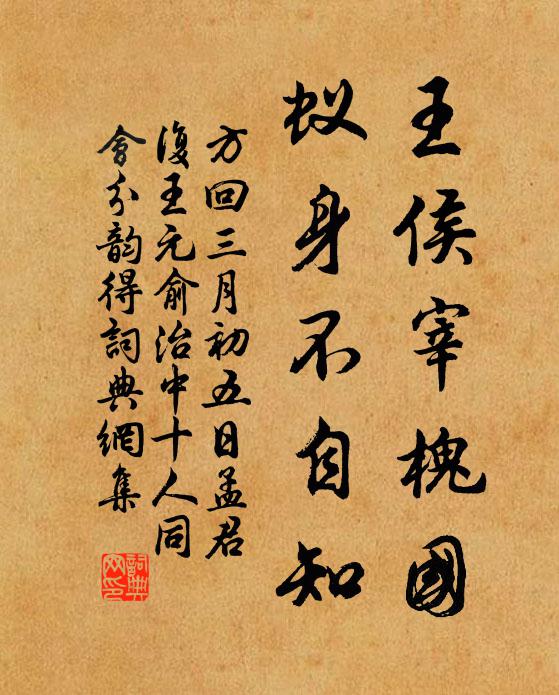 王侯宰槐國
蚁身不自知
方回三月初五日孟君
復王元俞治中十人同
會分韵得詞典網集
詞典
网印